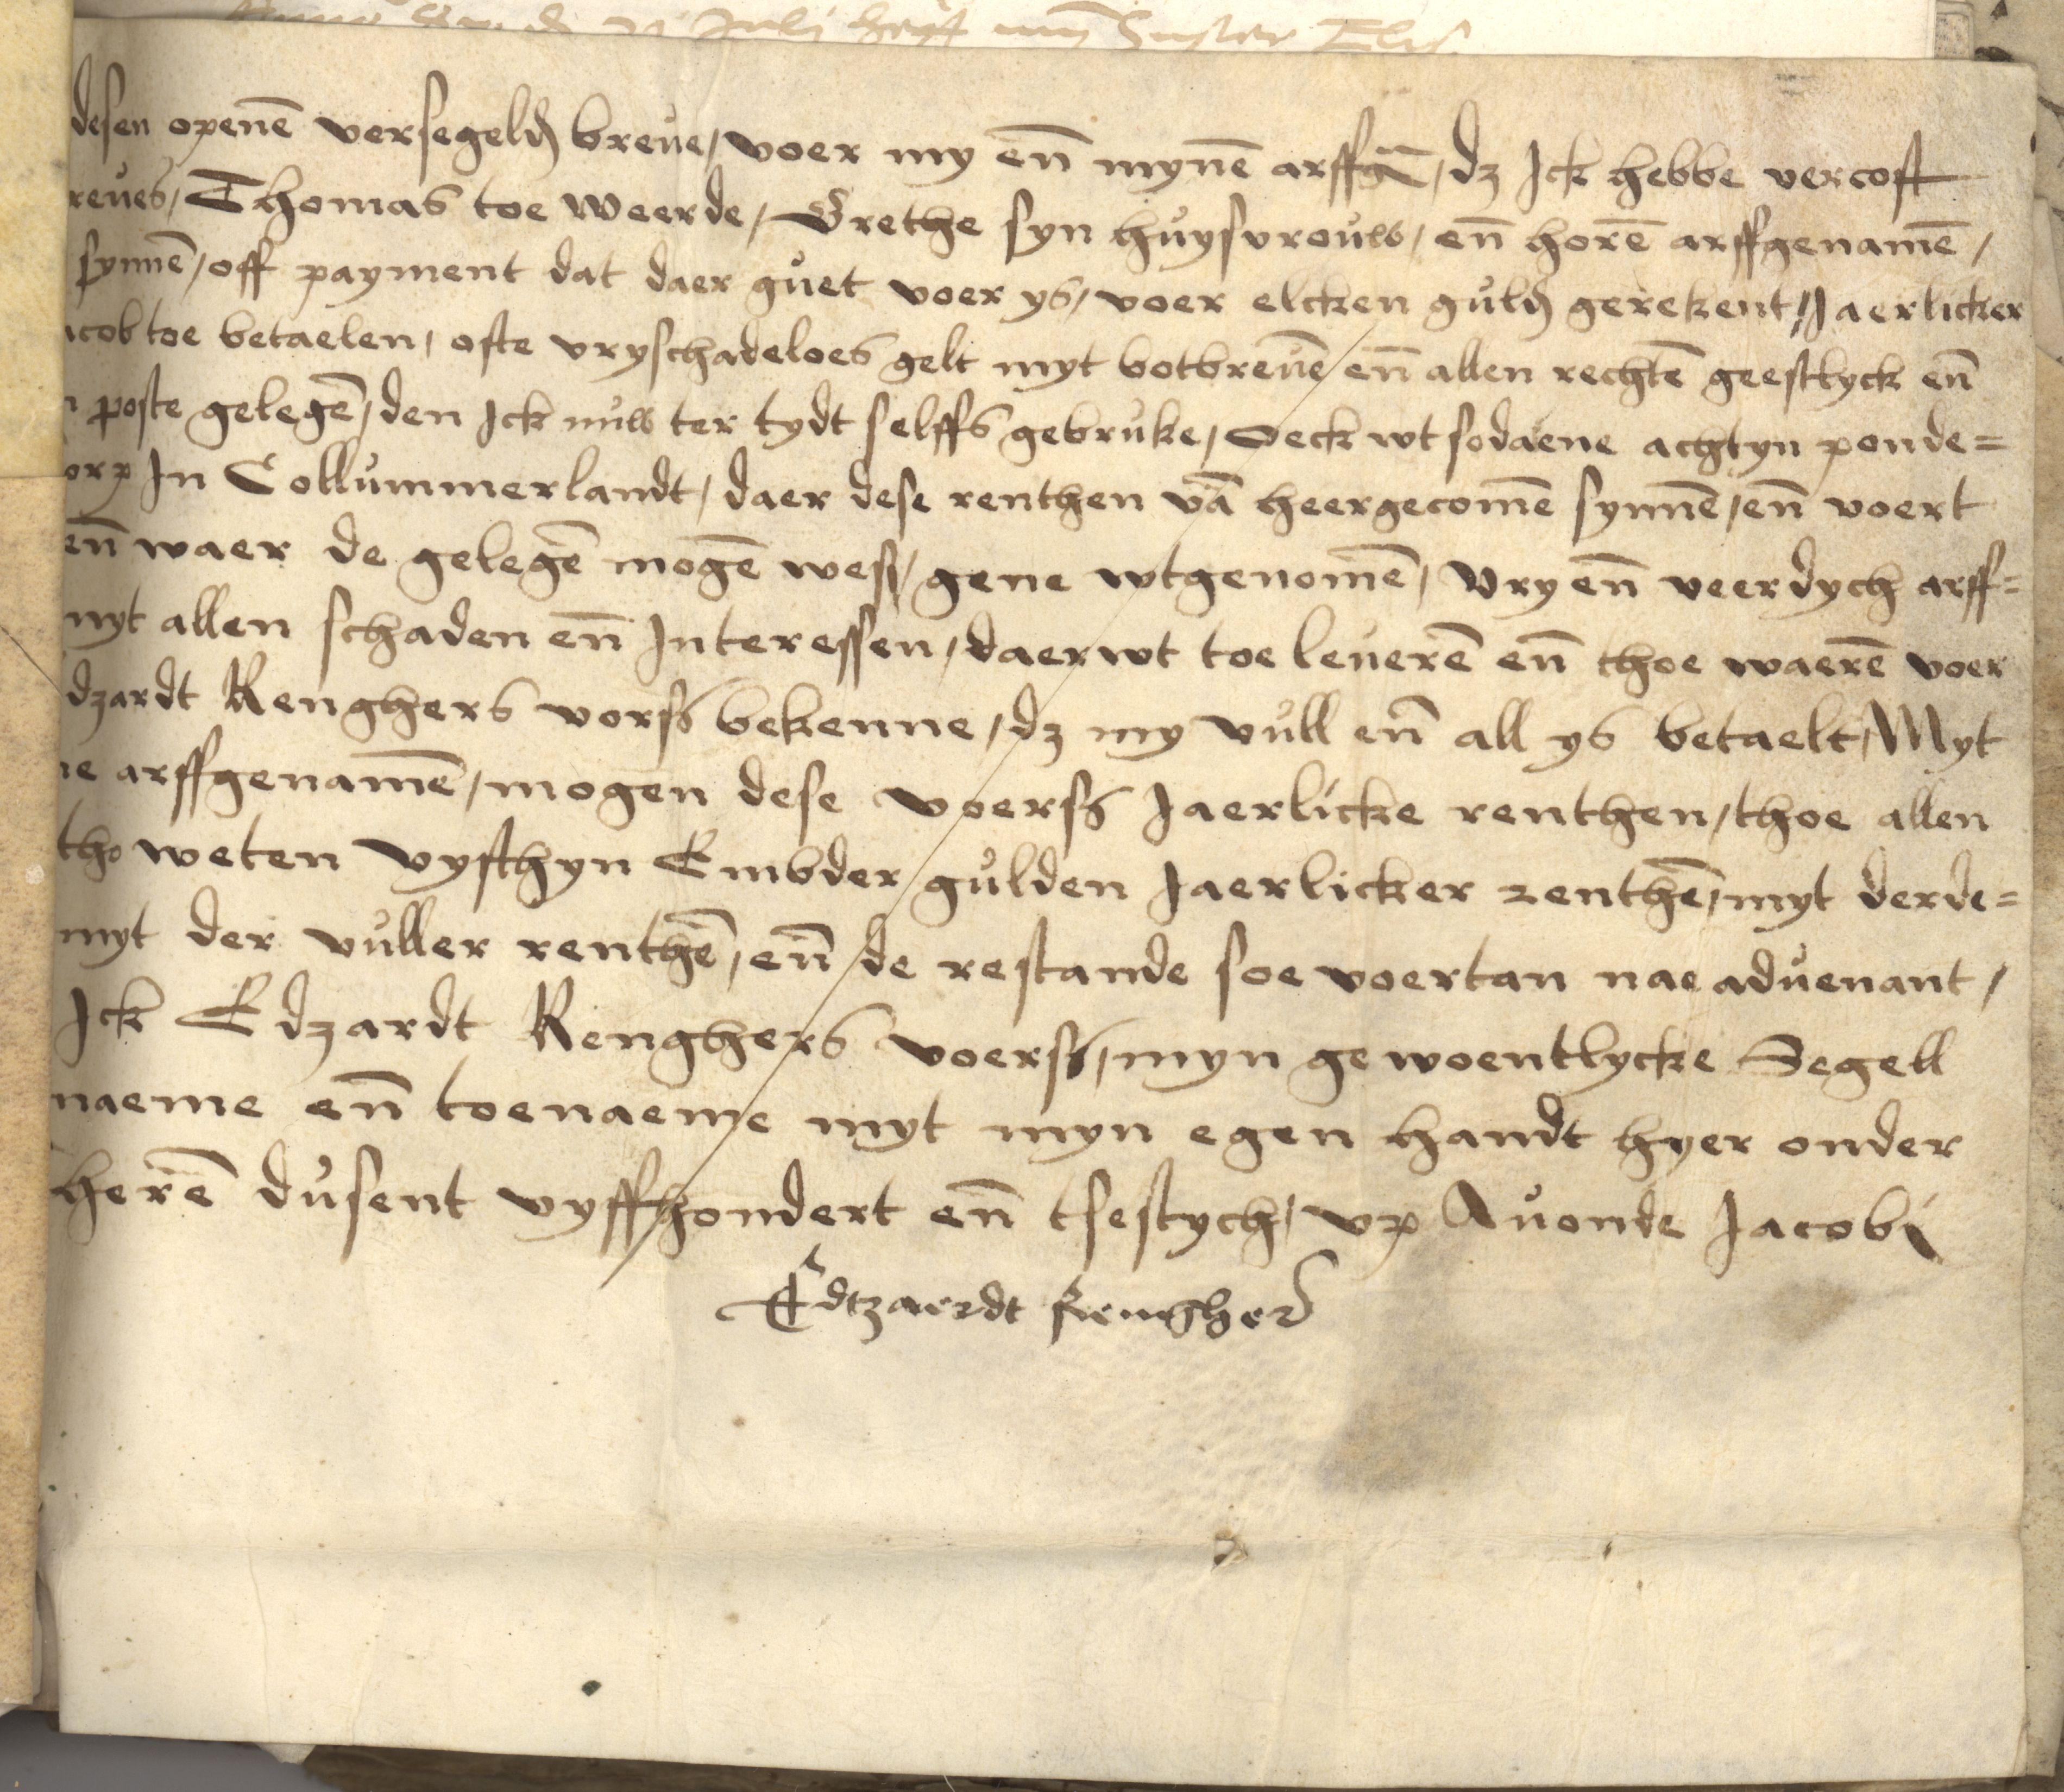 Juli heft myn Suster Elis
desen openē versegeld breve / voer my en̄ mynē arffḡ / dz Ick hebbe vercoft
reves / Thomas toe Weerde / Grethe syn huysvrouw / en̄ horē arffgenamē /
synnē / off payment dat daer guet voer ys / voer elcken guld gerekent / Jaerlicker
acob toe betaelen / ofte vryschadeloes gelt myt botbrevē en̄ allen rechtē geestlyck en̄
poste gelegē / den Ick nuw ter tydt selffs gebruke / Oeck wt sodaene achtyn ponde=
orp In Collummerlandt / daer dese renthen vā heergecomē synnē / en̄ voert
en̄ waer de gelegē mogē wesn / gene wtgenomē / Vry en̄ veerdych arff=
myt allen schaden en̄ Interessen / daer wt toe leverē en̄ thoe waerē voer
dzardt Renghers vorss bekenne / dz my vull en̄ all ys betaelt / Myt
ne arffgenamē / mogen dese voerss Jaerlicke renthen / thoe allen
tho weten vyfthyn Embder gulden Jaerlicker renthē / myt derde=
myt der vuller renthē / en̄ de restande soe voertan nae advenant /
Ick Edzardt Renghers voerss / myn gewoentlycke Segell
naeme en̄ toenaeme myt myn egen handt hyer onder
herē dusent vyffhondert en̄ tsestych / vp Avonde Jacobi
Edtzaerdt Renghers